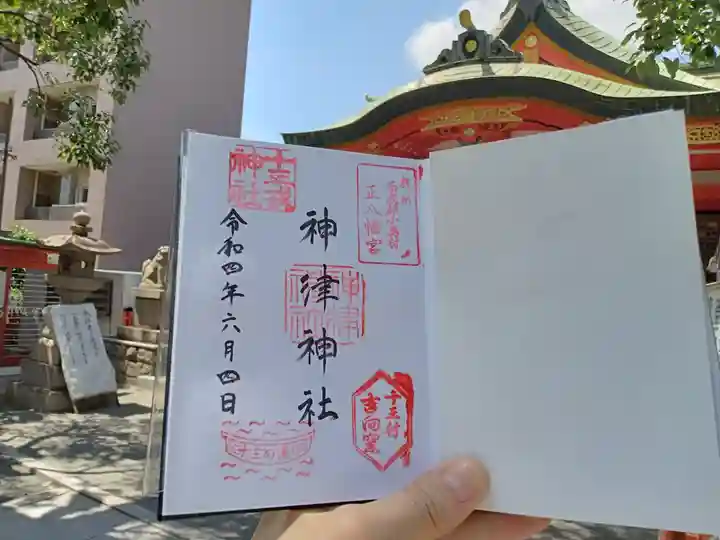 正八幡宮
神津神社
神津神社
十三戎
神社
令和四年六月四日
十三付
吉向窯